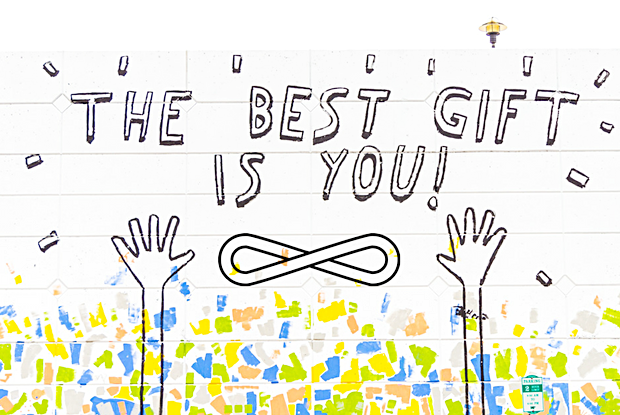 THE BEST GIFT
IS YOU!